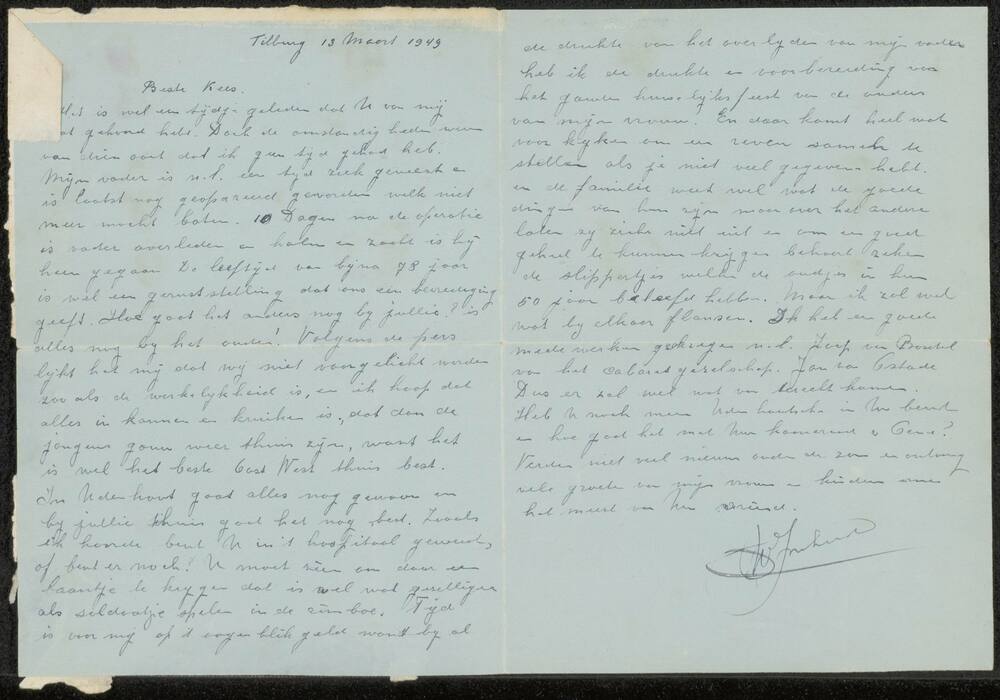 Tilburg 13 Maart 1949
Beste Kees.
Het is wel een tydje geleden dat U van mij
wat gehoord hebt. Doch de omstandigheden waren
van dien aard dat ik geen tijd gehad heb.
Mijn vader is n.l. een tijd ziek geweest en
is laatst nog geopereerd geworden welk niet
meer mocht baten. 10 Dagen na de operatie
is vader overleden en kalm en zacht is hij
heen gegaan De leeftijd van bijna 78 jaar
is wel een geruststelling dat ons een bevrediging
geeft. Hoe gaat het anders nog by jullie? is
alles nog by het oude! Volgens de pers
lijkt het mij dat wy niet voorgelicht worden
zoo als de werkelijkheid is, en ik hoop dat
alles in kannen en kruiken is, dat dan de
jongens gauw weer thuis zijn, want het
is wel het beste Oost West thuis best.
In Udenhout gaat alles nog gewoon en
by jullie thuis gaat het nog best. Zooals
ik hoorde bent U in 't hospitaal geweest,
of bent er noch! U moet zien om daar een
baantje te krygen dat is wel wat gezelliger
als soldaatje spelen in de rimboe. Tijd
is voor mij op 't oogenblik geld want by al
de drukte van het overlyden van mijn vader
heb ik de drukte en voorbereiding van
het gouden huwelijksfeest van de ouders
van mijn vrouw! En daar komt heel wat
voor kyken om een revue samen te
stellen als je niet veel gegevens hebt.
en de familie weet wel wat de goede
dingen van hun zijn maar over het andere
laten zy zich niet uit en om een goed
geheel te kunnen krijgen behoort zeker
de slippertjes welke de oudjes in hun
50 jaar beleefd hebben. Maar ik zal wel
wat by elkaar flansen. Ik heb een goede
medewerker gekregen n.l. Joep van Boxtel
van het cabaretgezelschap. Jan van Ostade
Dus er zal wel wat van terecht komen.
Heb U noch meer Udenhoutsche in Uw buurt
en hoe gaat het met Uw kameraad
Verder niet veel nieuws onder de zon en ontvang
vele groeten van mijn vrouw en kinderen
het meest van Uw vriend.